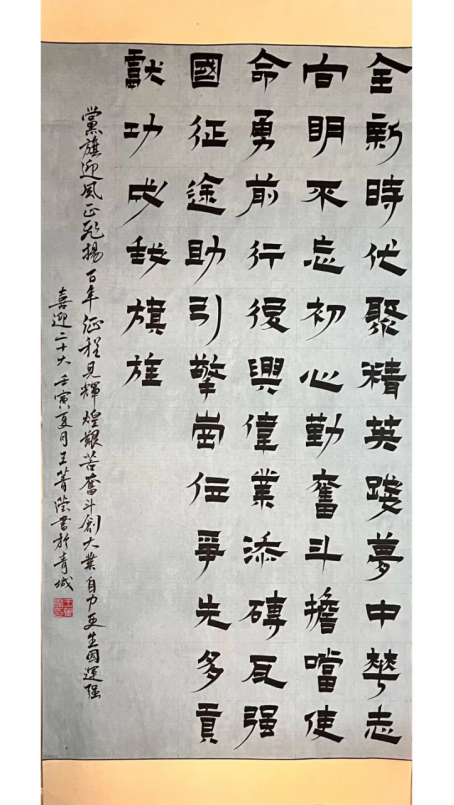 全新時代聚精英踐夢中華志
向明不忘初心勤奮斗擔當使
命勇前行復興偉業添磚瓦强
國征途助引擎岗任爭先多貢
獻功成我旗旌
黨旗迎風正飛揚百年征程見輝煌艱苦奮斗創大業自力更生國運强
喜迎二十大壬寅夏月王菁莹書於青城